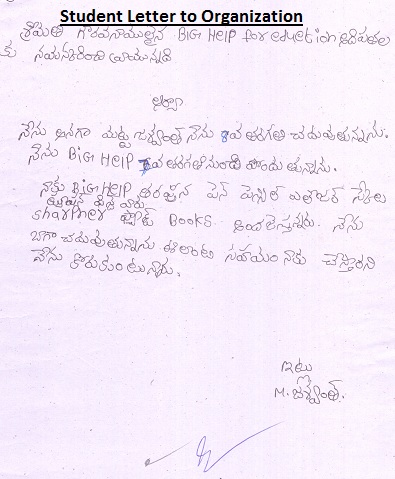 Student Letter to Organization
శ్రీమతి గౌరవనీయులైన BIG HELP for eduction అదిపతుల
కు నమస్కరించి వ్రాయునది
నేను అనగా మట్టు జశ్వంత్ నేను 8వ తరగతి చదువుతున్నాను.
నేను BIG HELP 7వ తరగతినుండి పొందుతున్నాను.
నాకు BIG HELP తరఫున పెన్ పెన్సిల్ ఎరాజర్ స్కేలు
sharpner Books అందజేస్తున్నారు. నేను
బాగా చదువుతున్నాను ఈలాంటి సహాయం నాకు చేస్తారని
నేను కోరుకుంటున్నాను.
ఇట్లు
M. జశ్వంత్.